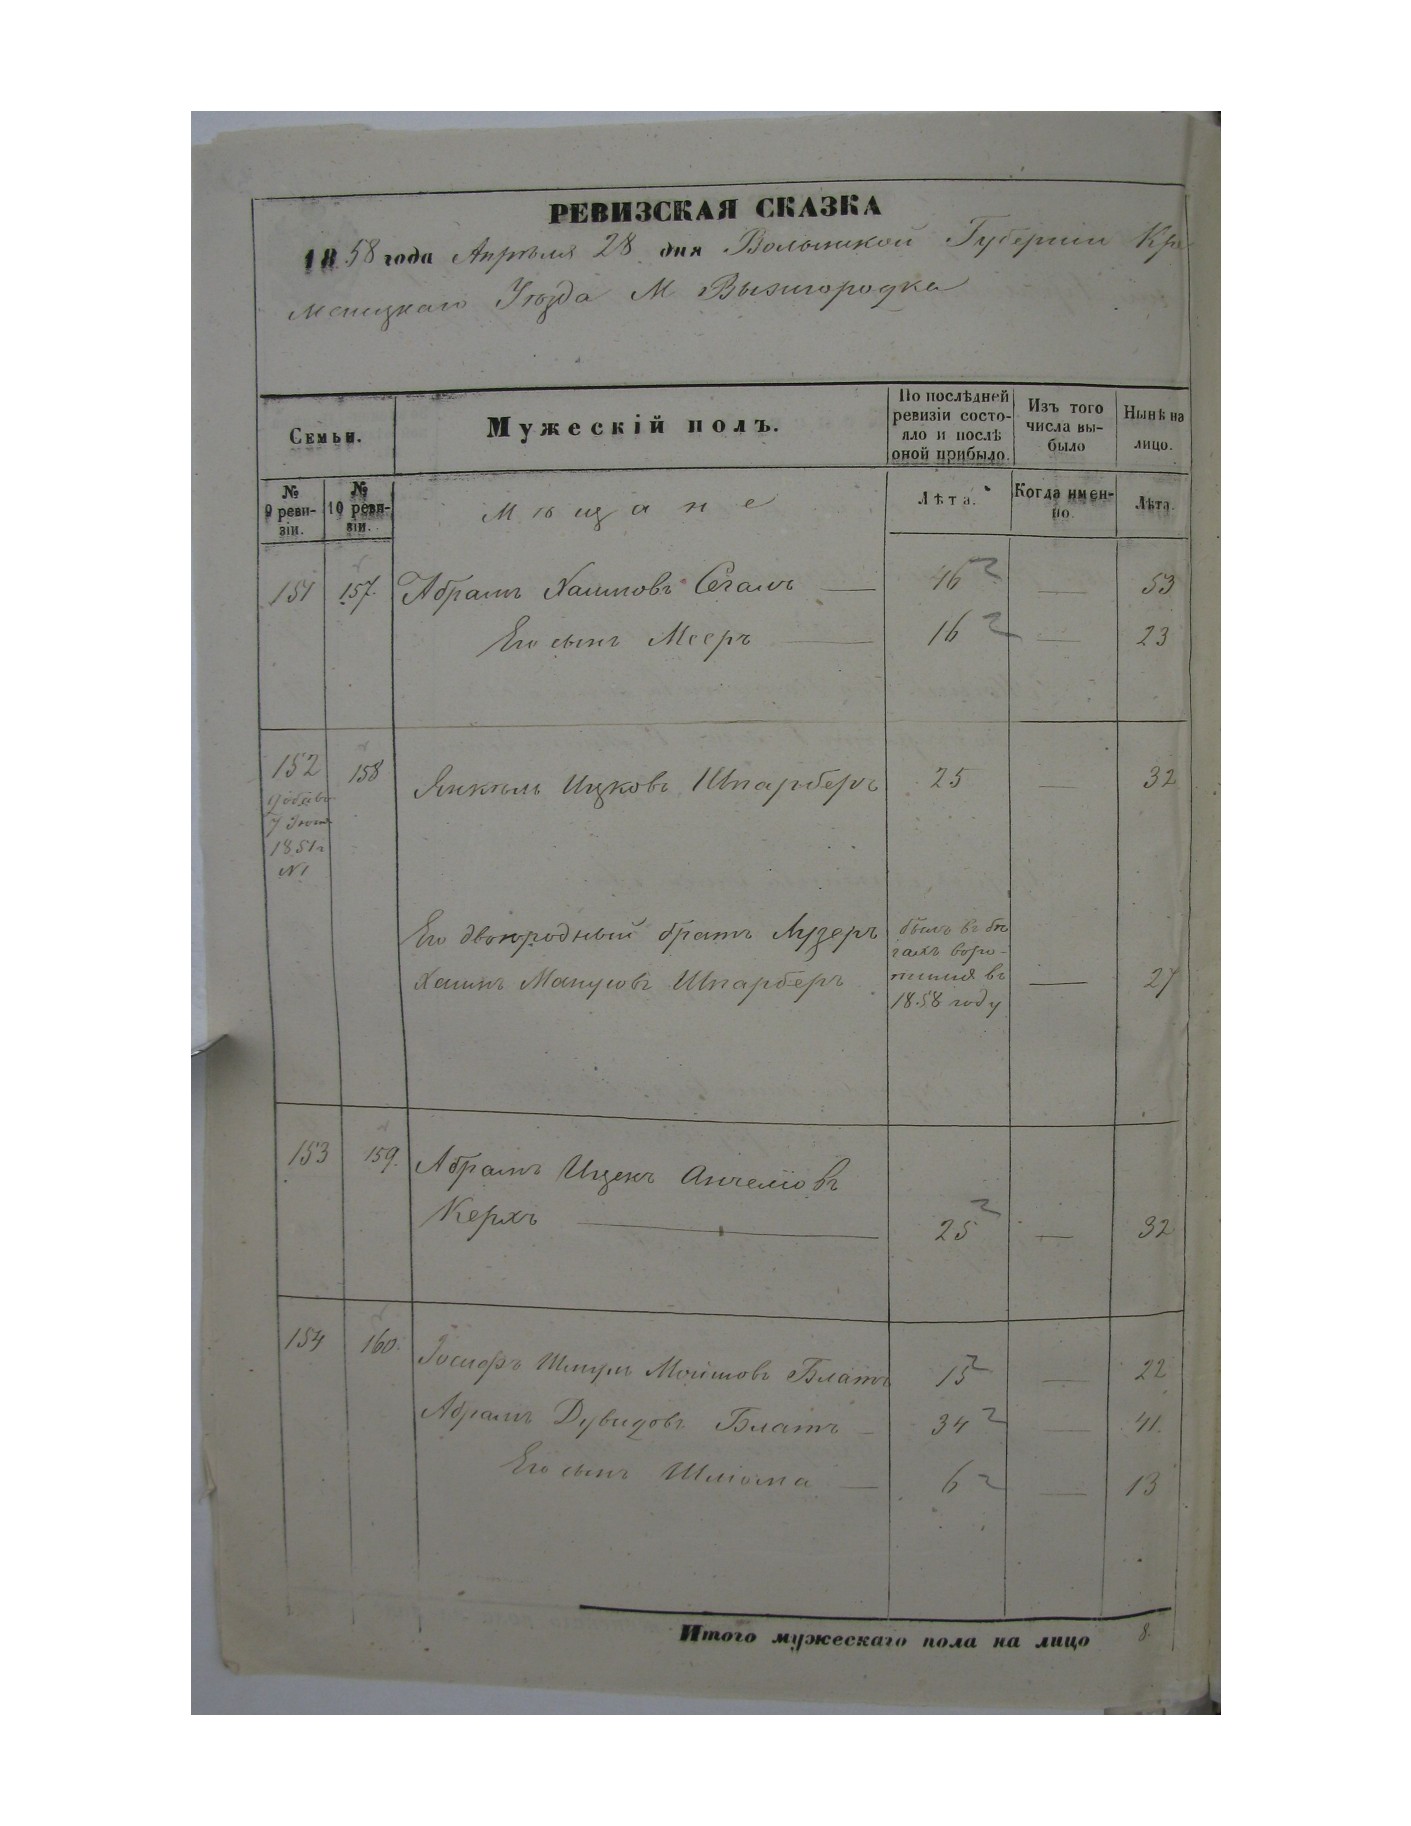 РЕВИЗСКАЯ СКАЗКА
1858 года Апрѣля 28 дня Волынской Губерніи Кре
менецкаго Уѣзда М Вышгородка
Семьи.
Мужескій полъ.
По послѣдней ревизіи состояло и послѣ оной прибыло.
Изъ того числа выбыло
Нынѣ на лицо.
№ 9 ревизіи.
№ 10 ревизіи.
Мѣщане
Лѣта.
Когда именно.
Лѣта.
151 157. Абрамъ Хаимовъ Сегалъ — 46 — 53
Его сынъ Мееръ — 16 — 23
152 158 Янкель Ицковъ Шпарберъ 25 — 32
7
1851 г
№ 1
Его двоюродный братъ Лузеръ былъ въ бѣ
Хаимъ Манусовъ Шпарберъ гахъ воро-
тился въ — 27
1858 году
153 159. Абрамъ Ицекъ Анчелiовъ
Керхъ — 25 — 32
154 160. Іосифъ Шмуль Мошковъ Блатъ 15 — 22
Абрамъ Дувидовъ Блатъ — 34 — 41
Его сынъ Шліома — 6 — 13
Итого мужескаго пола на лицо 8.